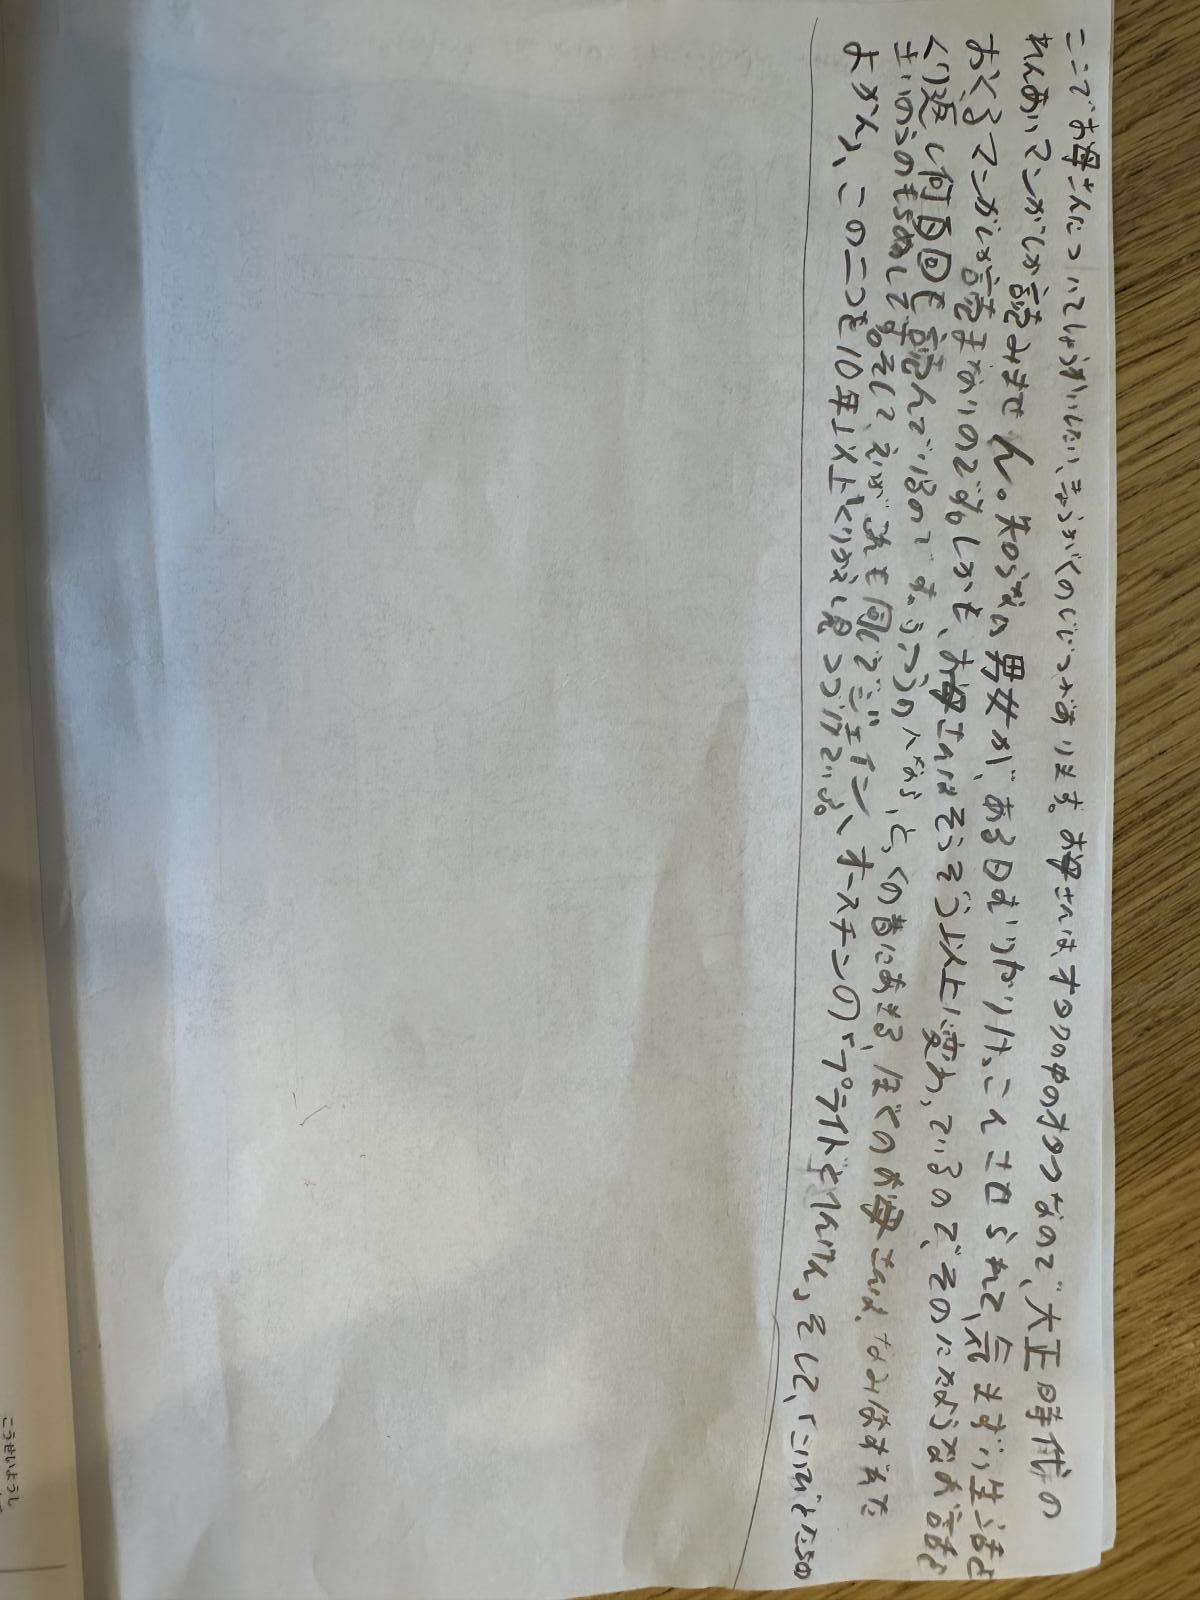 ここでお母さんについてしょうかいしたい、きょうがくのじじつがあります。お母さんはオタクの中のオタクなので、大正時代の
れんあいマンガしか読みません。知らない男女が、ある日むりやりけっこんさせられて、気まずい生活を
おくるマンガしか読まないのです。しかも、お母さんはそうぞう以上に変わっているので、そのにたようなお話を
くり返し何百回も読んでいるのです。ふつうの人なら、とっくの昔にあきる、ぼくのお母さんは、なみはずれた
さいのうのもちぬしです。そして、えいがあれも同じでジェイン、オースチンの「プライドとへんけん」そして、「こいびとたちの
よかん」、この二つを10年以上くりかえし見つづけている。
こうせいようし